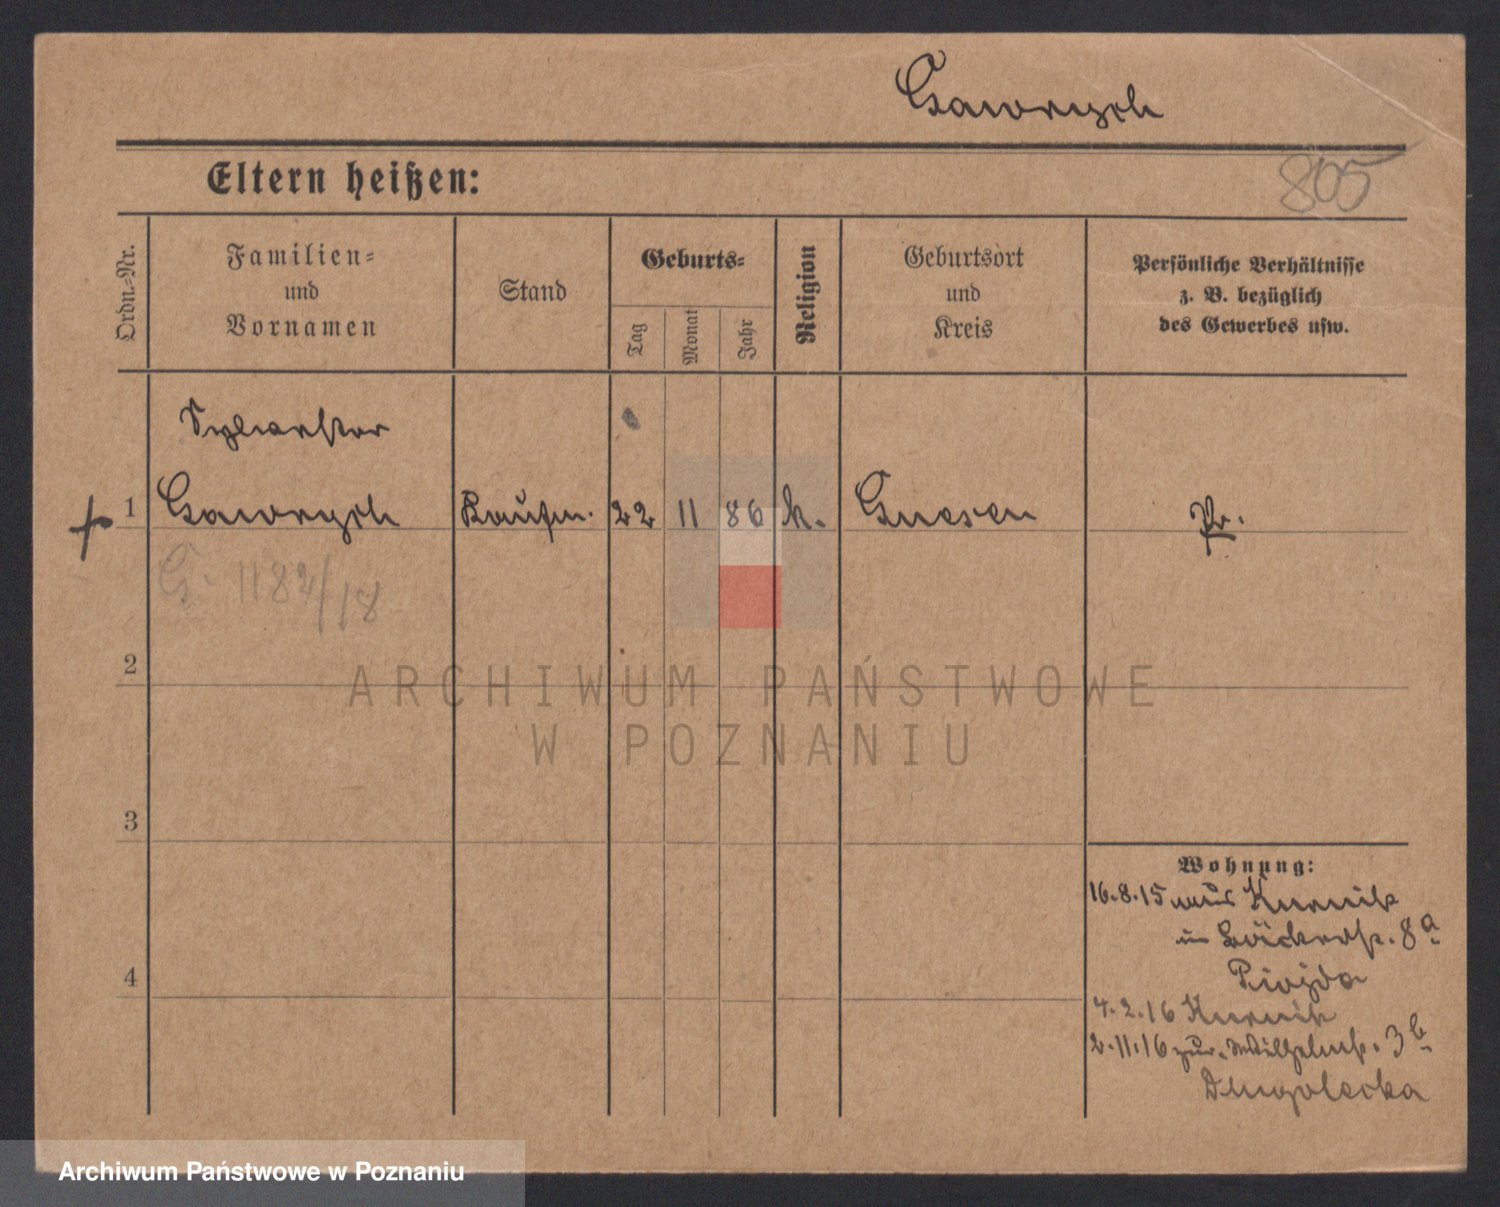 Gawrych
805
Eltern heißen:
Ordn.-Nr.
Familien-
und
Vornamen
Stand
Geburts-
Tag
Monat
Jahr
Religion
Geburtsort
und
Kreis
Persönliche Verhältnisse
z. B. bezüglich
des Gewerbes usw.
Sylvester
1 Gawrych Kaufm. 22 11 86 k. Gnesen Pr.
G. 1182/18
2
ARCHIWUM PAŃSTWOWE
W POZNANIU
3
4
Wohnung:
16.8.15 aus Kurnik
in Bäckerstr. 8a
4.2.16 Kurnik
2.11.16 zur. Wilhelmstr. 3b
Dlugolecka
Archiwum Państwowe w Poznaniu